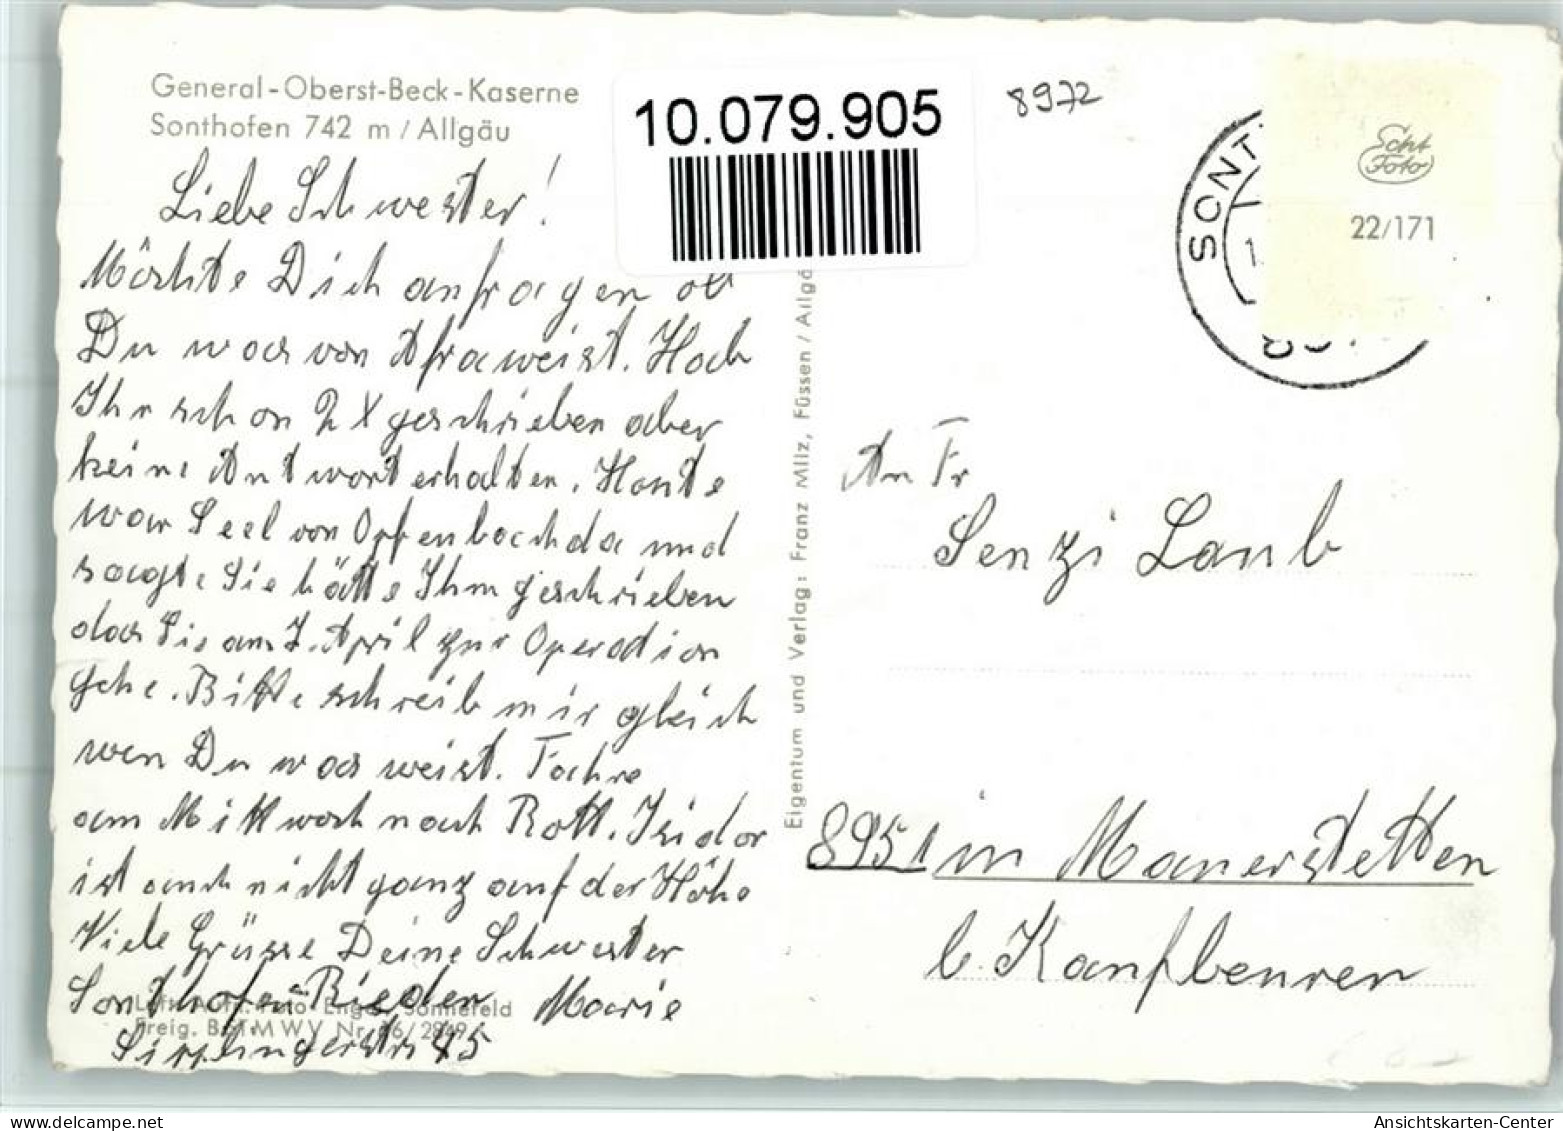 General-Oberst-Beck-Kaserne
Sonthofen 742 m / Allgäu
10.079.905
8972
SONT
Echt
Foto
22/171
Liebe Schwester!
Möchte Dich anfragen ob
Du was von Afra weist. Hab
Ihr schon 2 X geschrieben aber
keine Antwort erhalten. Heute
war Seel von Opfenbach da und
sagte Sie hätte Ihm geschrieben
das Sie am 7. April zur Operation
gehe. Bitte schreib mir gleich
wen Du was weist. Fahre
am Mittwoch nach Rott. Isidor
ist auch nicht ganz auf der Höhe
Viele Grüsse Deine Schwester
Sonthofen Rieden Marie
45
Eigentum und Verlag: Franz Milz, Füssen / Allgä
An Fr
Senzi Laub
8951 in Mauerstetten
b. Kaufbeuren
delcampe.net
Ansichtskarten-Center